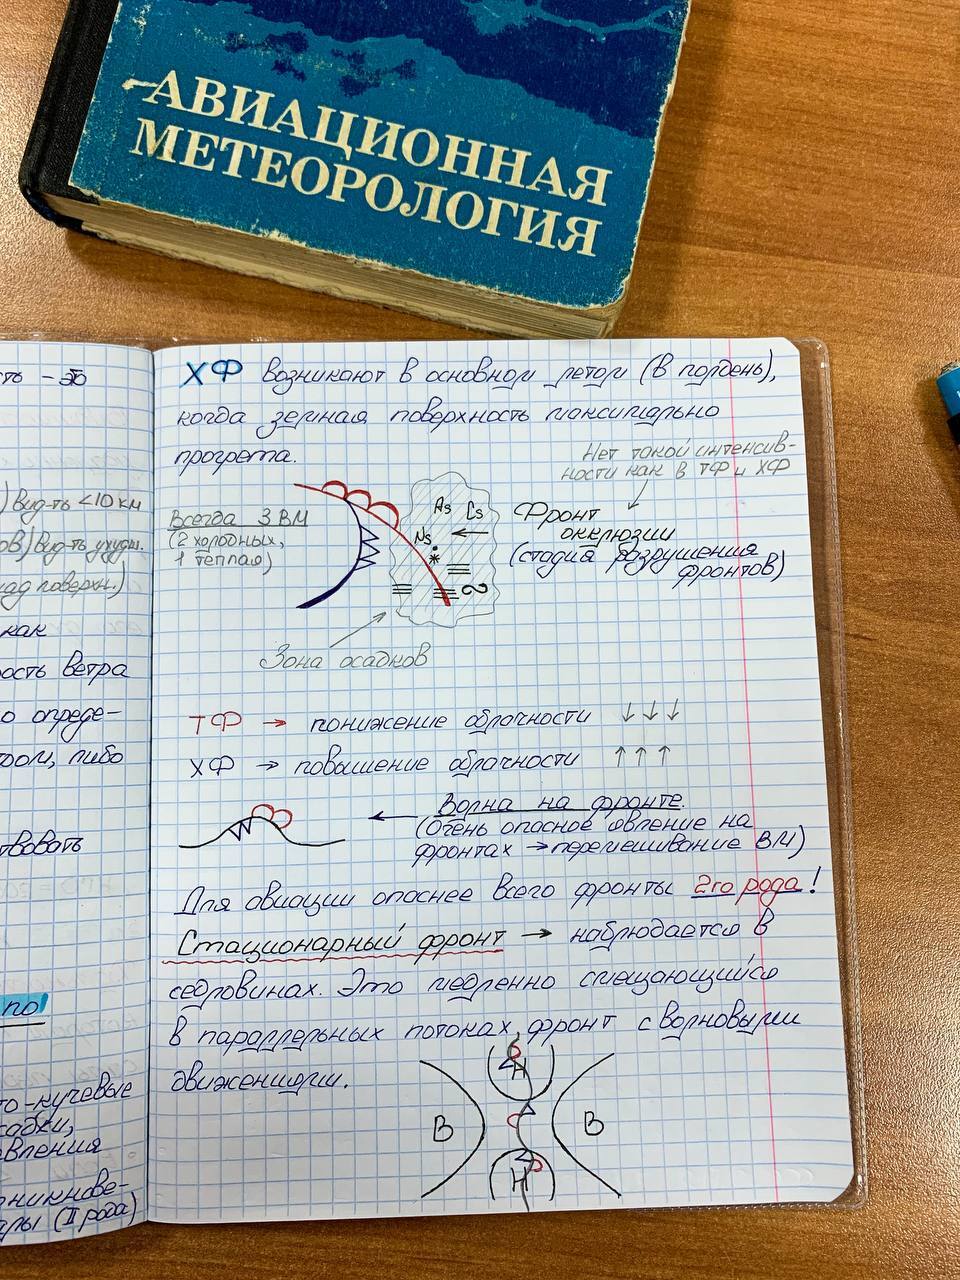 АВИАЦИОННАЯ
МЕТЕОРОЛОГИЯ
ХФ возникают в основном летом (в полдень),
когда земная поверхность максимально
прогрета.
Нет такой интенсив-
ности как в ТФ и ХФ
Всегда 3 ВМ
(2 холодных,
1 теплая)
As Cs
Ns
Фронт
окклюзии
(стадия разрушения
фронтов)
Зона осадков
ТФ → понижение облачности ↓↓↓
ХФ → повышение облачности ↑↑↑
Волна на фронте.
(Очень опасное явление на
фронтах → перемешивание ВМ)
Для авиации опаснее всего фронты 2го рода!
Стационарный фронт → наблюдается в
седловинах. Это медленно смещающийся
в параллельных потоках фронт с волновыми
движениями.
Н
В В
Н
ть -
) Вид-ть <10 км
ов) Вид-ть ухудш.
над поверхн.)
как
рость ветра
о опреде-
ром, либо
твовать
по
то-кучевые
садки,
вления
зникнове-
(II рода)